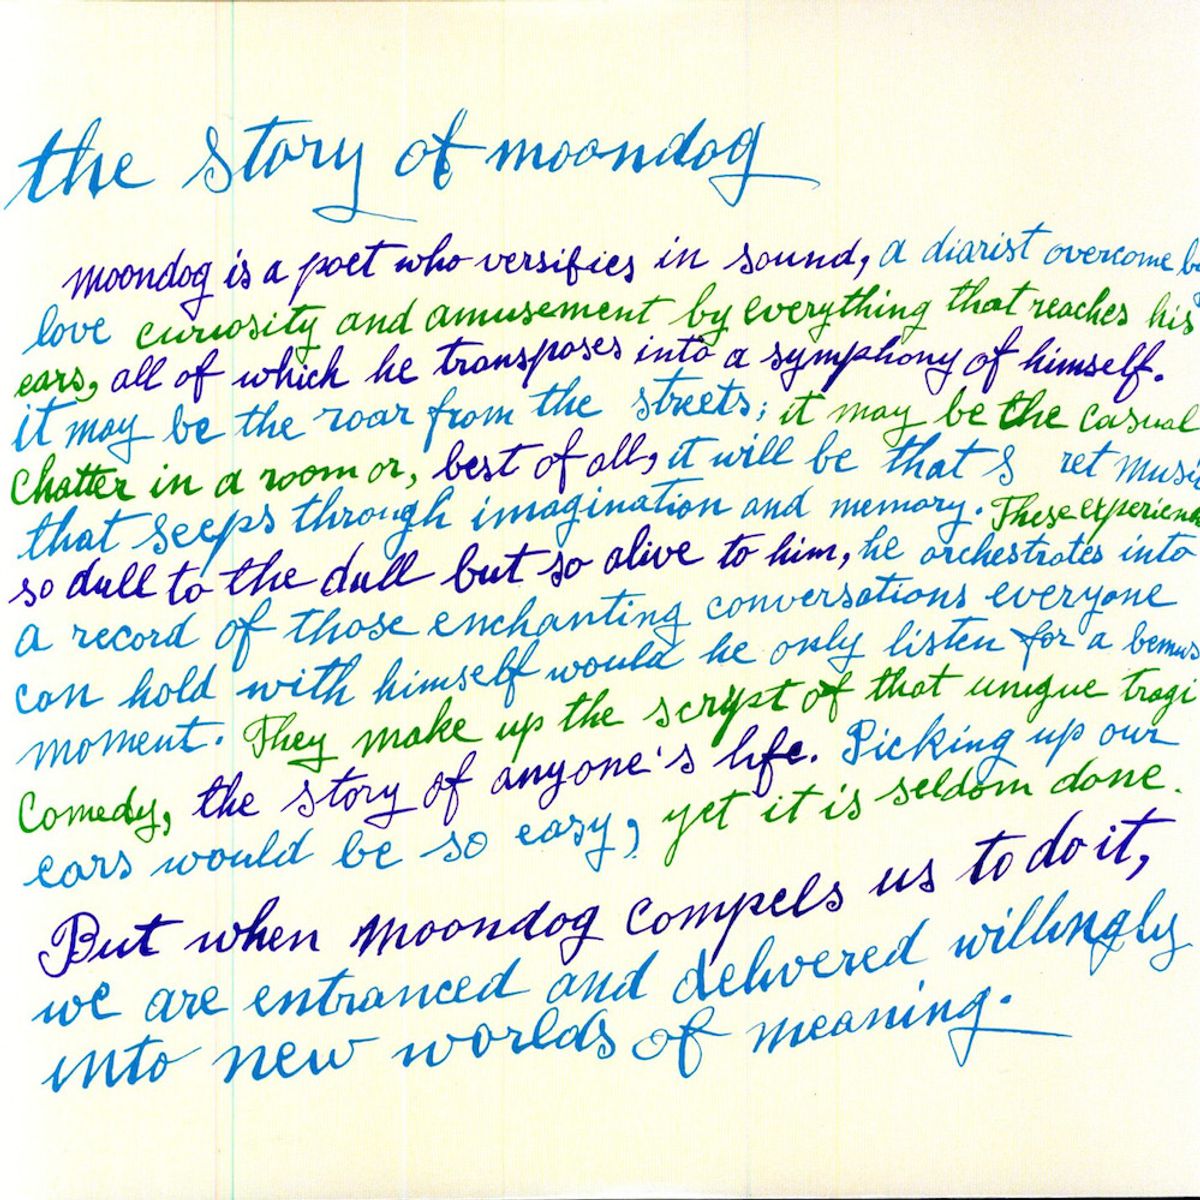 the story of moondog
moondog is a poet who versifies in sound, a diarist overcome b
love curiosity and amusement by everything that reaches his
ears, all of which he transposes into a symphony of himself.
it may be the roar from the streets; it may be the casual
chatter in a room or, best of all, it will be that s ret musi
that seeps through imagination and memory. These experienc
so dull to the dull but so alive to him, he orchestrates into
a record of those enchanting conversations everyone
can hold with himself would he only listen for a bemus
moment. They make up the script of that unique tragi
Comedy, the story of anyone's life. Picking up our
ears would be so easy, yet it is seldom done.
But when moondog compels us to do it,
we are entranced and delivered willingly
into new worlds of meaning.